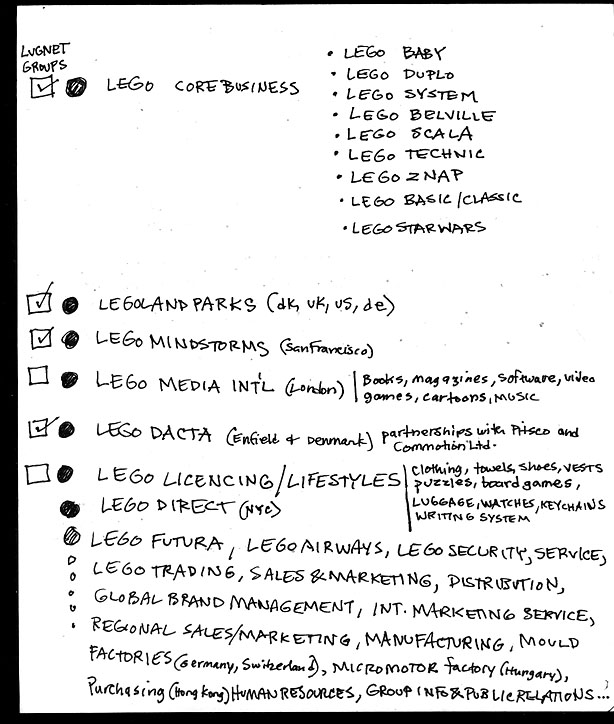 LUGNET
GROUPS
LEGO CORE BUSINESS
• LEGO BABY
• LEGO DUPLO
• LEGO SYSTEM
• LEGO BELVILLE
• LEGO SCALA
• LEGO TECHNIC
• LEGO ZNAP
• LEGO BASIC/CLASSIC
• LEGO STAR WARS
LEGOLAND PARKS (dk, uk, us, de)
LEGO MINDSTORMS (San Francisco)
LEGO MEDIA INT'L (London) | Books, magazines, software, video
games, cartoons, MUSIC
LEGO DACTA (Enfield & Denmark) partnerships with Pitsco and
Commotion Ltd.
LEGO LICENCING/LIFESTYLES | clothing, towels, shoes, VESTS
puzzles, board games,
LEGO DIRECT (NYC) LUGGAGE, WATCHES, KEYCHAINS
WRITING SYSTEM
LEGO FUTURA, LEGO AIRWAYS, LEGO SECURITY, SERVICE,
LEGO TRADING, SALES & MARKETING, DISTRIBUTION,
GLOBAL BRAND MANAGEMENT, INT. MARKETING SERVICE,
REGIONAL SALES/MARKETING, MANUFACTURING, MOULD
FACTORIES (Germany, Switzerland), MICROMOTOR factory (Hungary),
Purchasing (Hong Kong) HUMAN RESOURCES, GROUP INFO & PUBLIC RELATIONS...